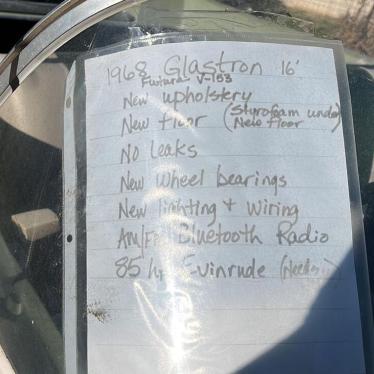 1968 Glastron 16'
V-153
New upholstery
New floor (Styrofoam under
New floor)
No Leaks
New wheel bearings
New lighting + wiring
Am/Fm Bluetooth Radio
85 hp Evinrude